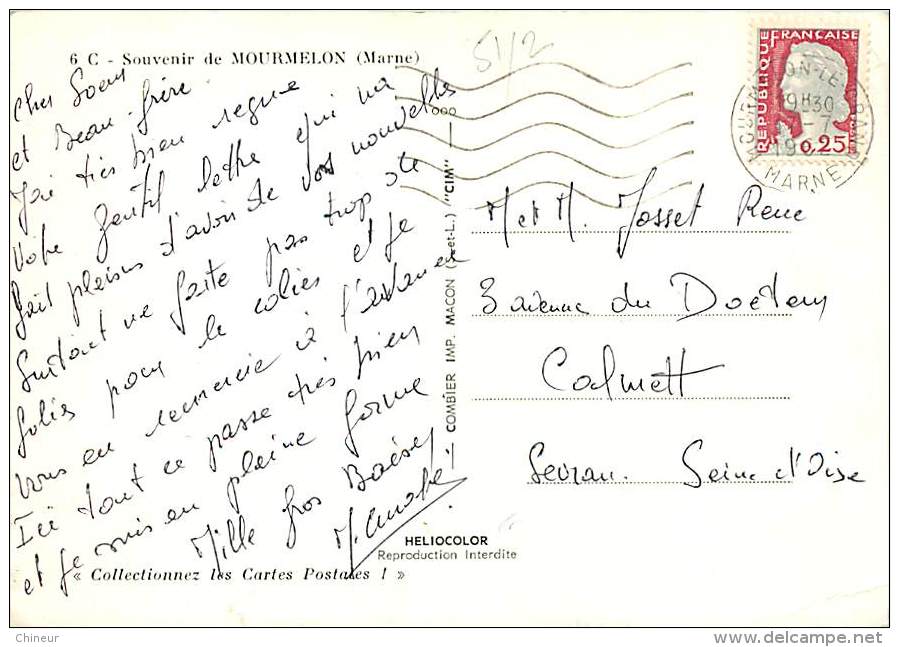 6 C - Souvenir de MOURMELON (Marne)
51/2
Cher Soeur
et Beau-frère.
J'ai très bien reçue
Votre gentil lettre qui m'a
fait plaisir d'avoir de vos nouvelles
Surtout ne faite pas trop de
folies pour le colies et je
vous en remercie à l'avance
Ici tout ce passe très bien
et je suis en pleine forme
Mille gros Baisers
COMBIER IMP. MACON (S.-et-L.) "CIM"
RÉPUBLIQUE FRANÇAISE
0,25
19H30
MARNE
M et M. Josset Rene
3 avenue du Docteur
Calmett
Sevran. Seine d'Oise
HELIOCOLOR
Reproduction Interdite
« Collectionnez les Cartes Postales ! »
Chineur
delcampe.net